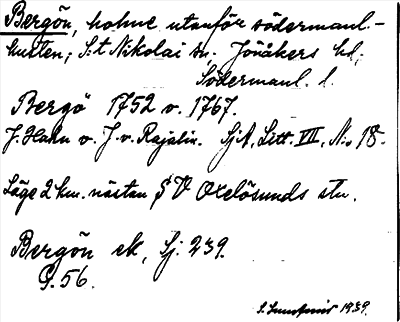 Bergön, holme utanför södermanl.-
kusten; S:t Nikolai sn. Jönåkers hd;
Södermanl. l.
Bergö 1752 v. 1767.
J. Hahn v. J. v. Rajalin. SjA, Litt. VII, No 18.
Läge 2 km. nästan § V Oxelösunds stn.
Bergön ek, Sj. 239.
G. 56.
1939.